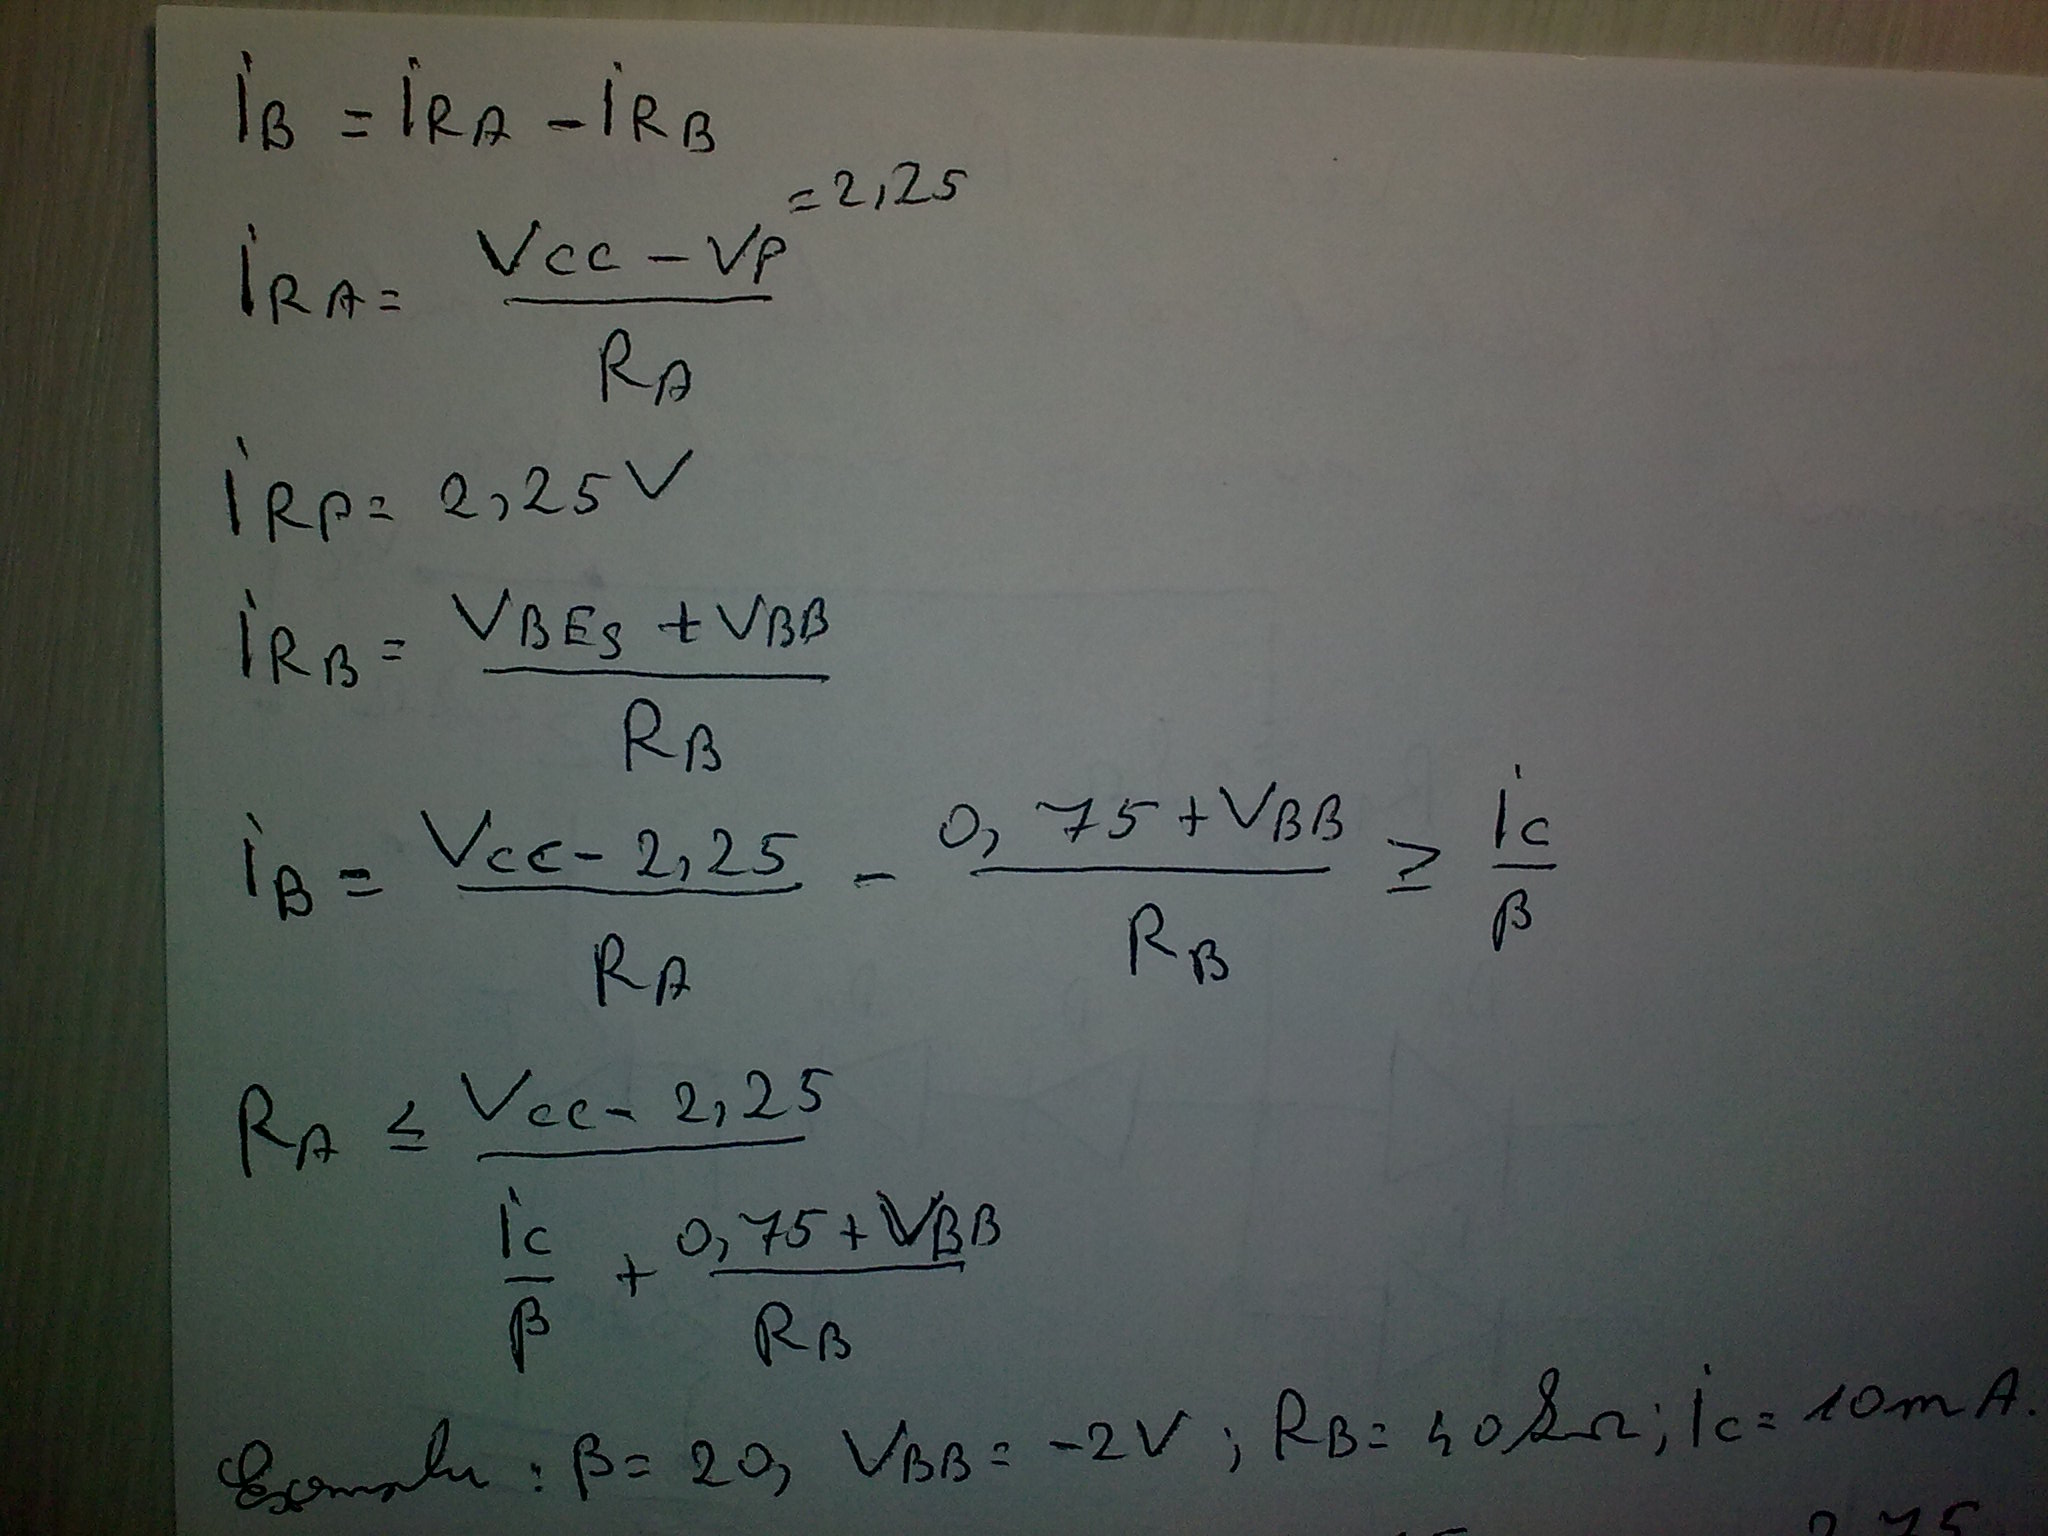 iB = iRA - iRB
iRA = (VCC - VP = 2,25) / RA
iRP = 2,25 V
iRB = (VBES + VBB) / RB
iB = (VCC - 2,25) / RA - (0,75 + VBB) / RB ≥ iC / β
RA ≤ (VCC - 2,25) / (iC / β + (0,75 + VBB) / RB)
: β = 20, VBB = -2V ; RB = 40 kΩ ; iC = 10 mA.